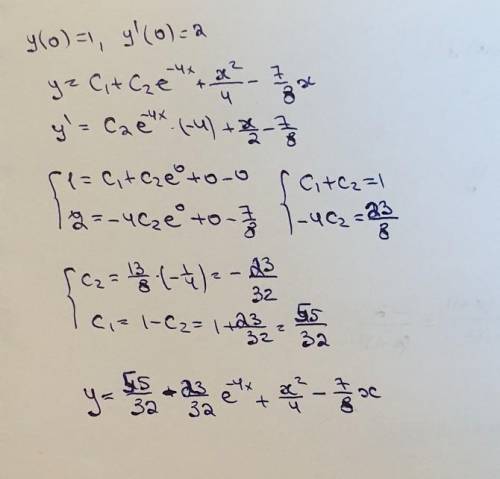 y(0)=1, y'(0)=2
y = C₁ + C₂e^{-4x} + x²/4 - 7/8 x
y' = C₂e^{-4x}·(-4) + x/2 - 7/8
{ 1 = C₁ + C₂e⁰ + 0 - 0 { C₁ + C₂ = 1
2 = -4C₂e⁰ + 0 - 7/8 -4C₂ = 23/8
{ C₂ = 13/8·(-1/4) = -23/32
C₁ = 1 - C₂ = 1 + 23/32 = 55/32
y = 55/32 - 23/32 e^{-4x} + x²/4 - 7/8 x